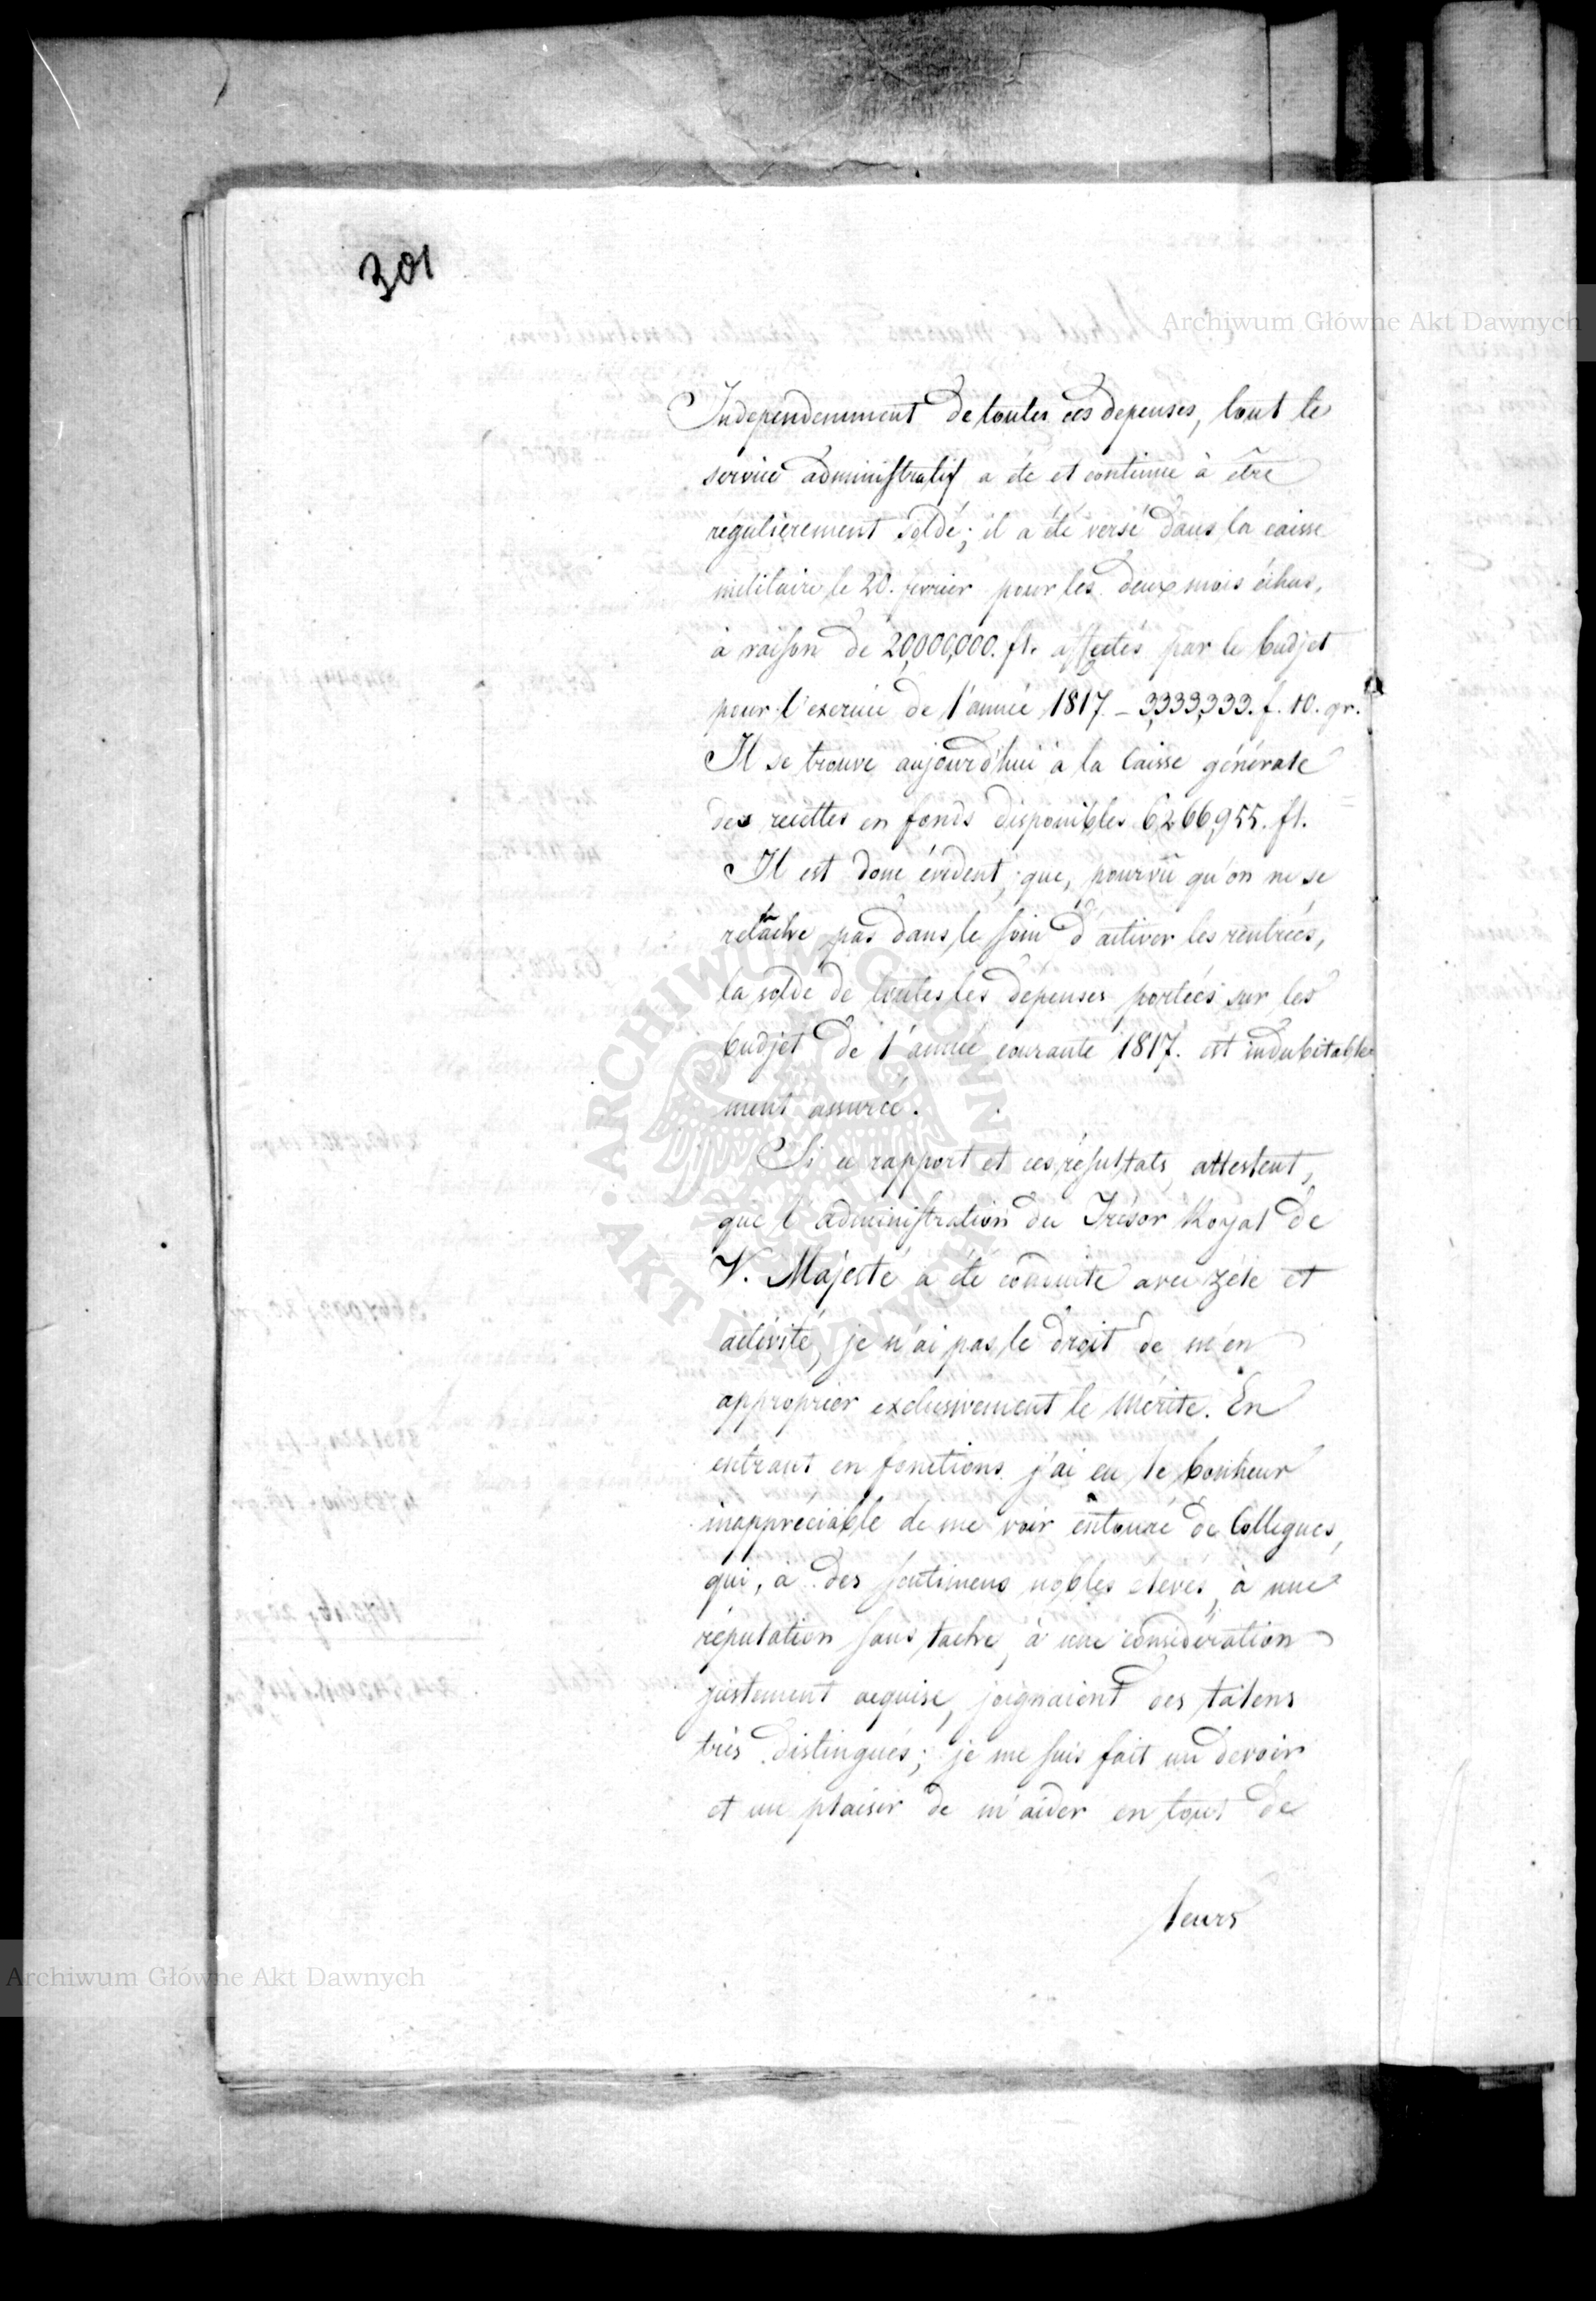 301
Archiwum Główne Akt Dawnych
Independemment de toutes ces depenses, tout le
service administratif a éte et continue à être
régulièrement soldé; il a été versé dans la caisse
militaire le 20. fevrier pour les deux mois échus,
à raison de 20,000,000. fl. affectés par le budjet
pour l'exercice de l'année 1817 – 3,333,333. f. 10. gr.
Il se trouve aujourd'hui à la Caisse générale
des recettes en fonds disponibles 6,266,955. fl.
Il est donc évident, que, pourvû qu'on ne se
relâche pas dans le soin d'activer les rentrées,
la solde de toutes les depenses portées sur les
budjet de l'année courante 1817. est indubitable
ment assurée.
Si ce rapport et ces résultats attestent,
que l'administration du Trésor Royal de
V. Majesté a été conduite avec zéle et
activité, je n'ai pas le droit de m'en
approprier exclusivement le mérite. En
entrant en fonctions j'ai eu le bonheur
inappréciable de me voir entouré de Collegues,
qui, à des sentimens nobles élevés, à une
réputation sans tache, à une considération
justement acquise, joignaient des talens
très distingués; je me suis fait un devoir
et un plaisir de m'aider en tout de
leurs
Archiwum Główne Akt Dawnych
ARCHIWUM GŁÓWNE AKT DAWNYCH